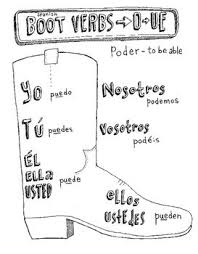 Spanish
BOOT VERBS → O → UE
Poder - to be able
Yo puedo
Nosotros
podemos
Tú puedes
Vosotros
podéis
Él
ella puede
USTED
ellos
ustedes pueden